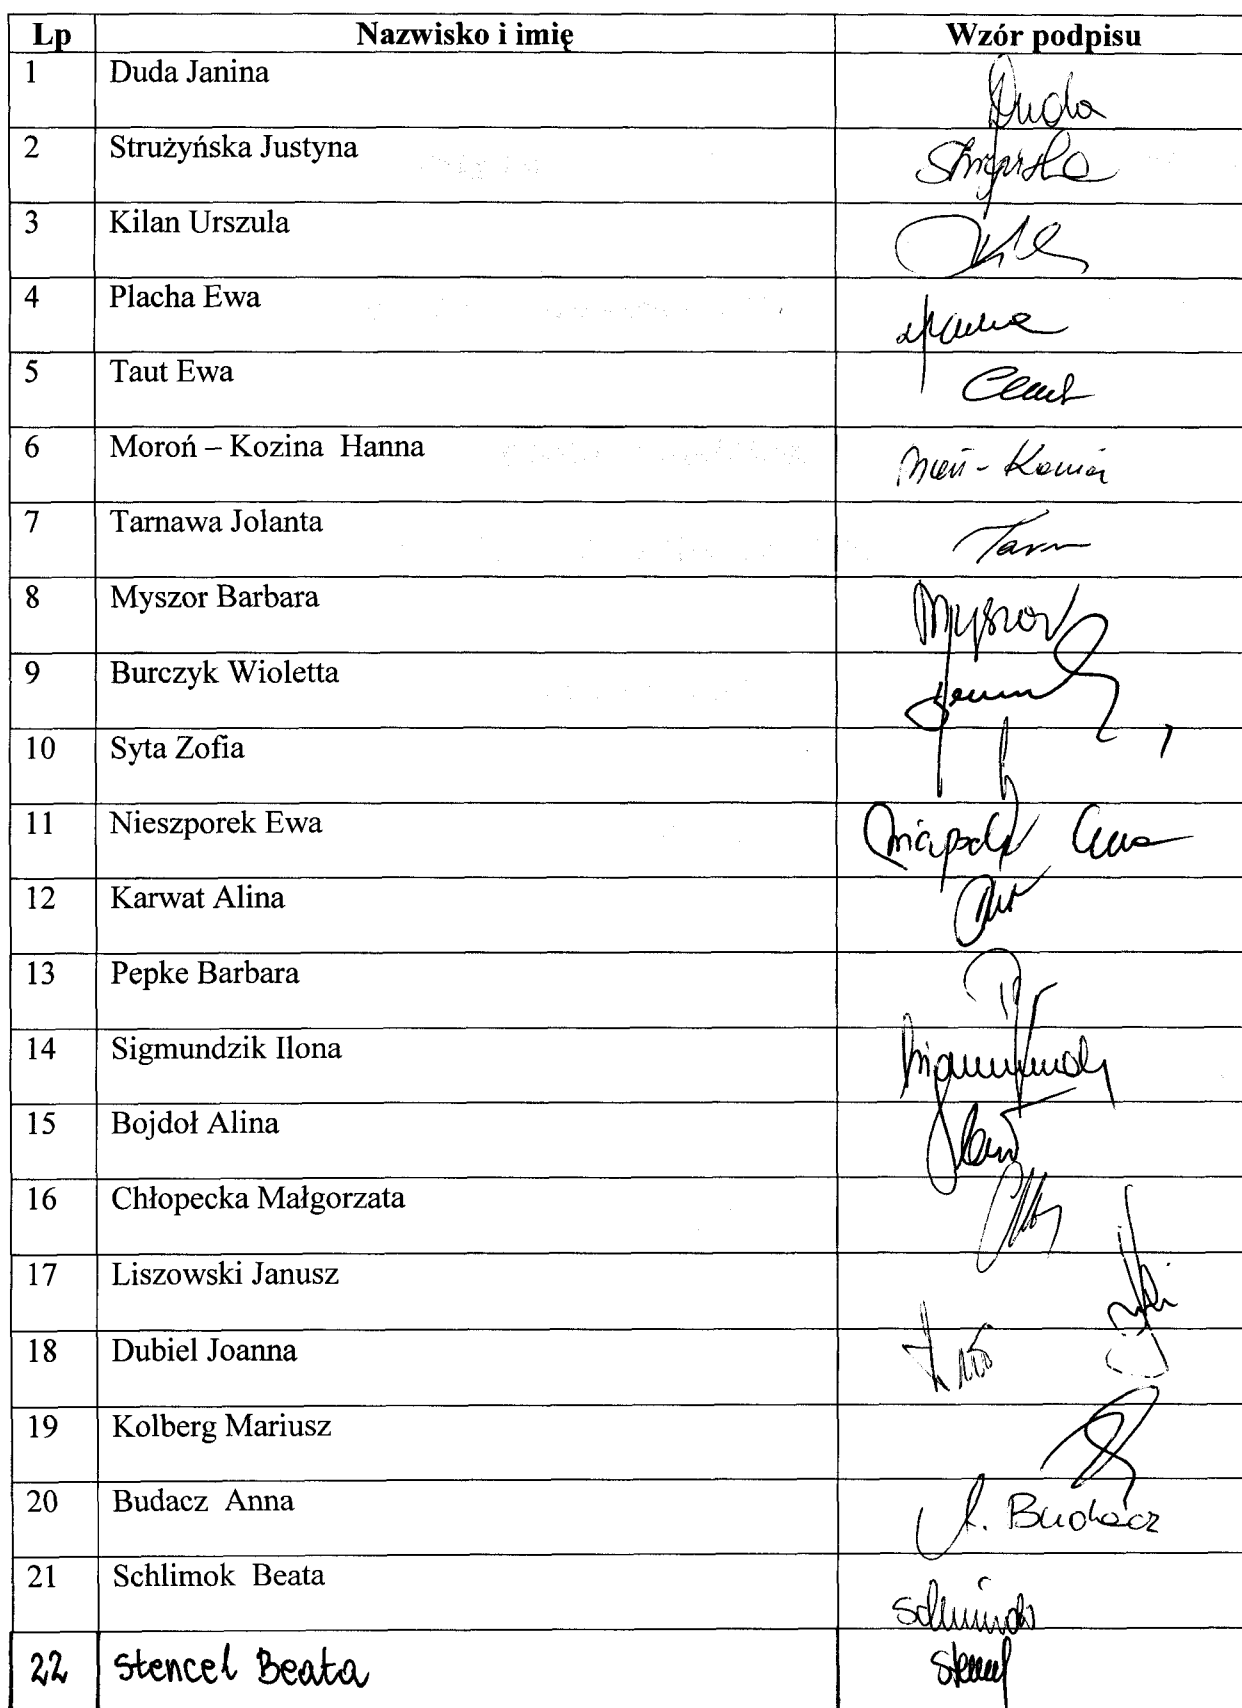 Lp Nazwisko i imię Wzór podpisu
1 Duda Janina Duda
2 Strużyńska Justyna
3 Kilan Urszula
4 Placha Ewa
5 Taut Ewa
6 Moroń – Kozina Hanna
7 Tarnawa Jolanta Tarn
8 Myszor Barbara Myszor
9 Burczyk Wioletta
10 Syta Zofia
11 Nieszporek Ewa
12 Karwat Alina
13 Pepke Barbara
14 Sigmundzik Ilona
15 Bojdoł Alina
16 Chłopecka Małgorzata
17 Liszowski Janusz
18 Dubiel Joanna
19 Kolberg Mariusz
20 Budacz Anna A. Budacz
21 Schlimok Beata
22 Stencel Beata